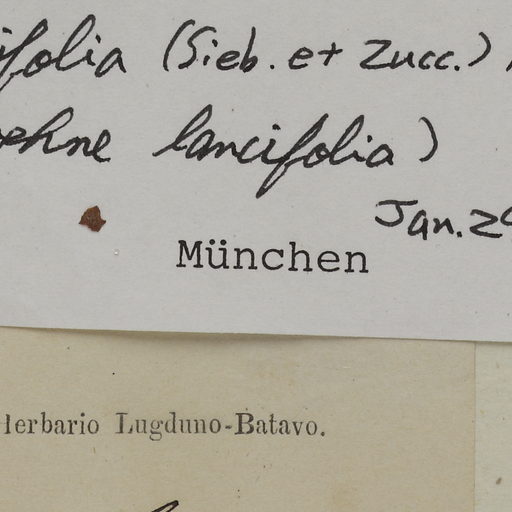 ifolia (Sieb. et Zucc.)
oehne lancifolia)
Jan. 29
München
Herbario Lugduno-Batavo.